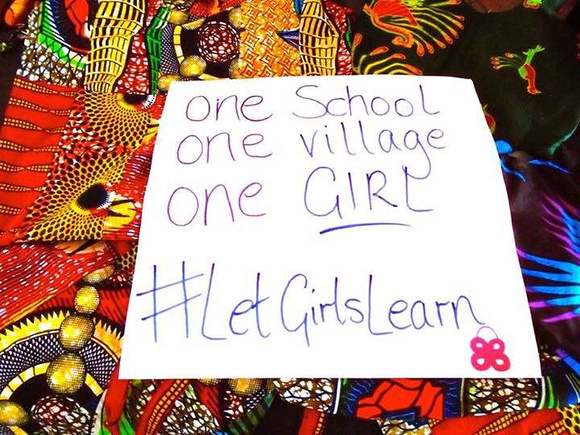 one School
one village
one GIRL
#LetGirlsLearn